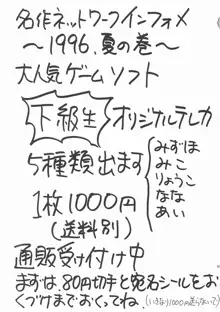 名作ネットワークインフォメ
〜1996.夏の巻〜
大人気ゲームソフト
下級生 オリジナルテレカ
5種類出ます
みずほ
みこ
りょうこ
なな
あい
1枚1000円
(送料別)
通販受け付け中
まずは、80円切手と宛名シールをお
くづけまでおくってね。(いきなり1000円送らないで)